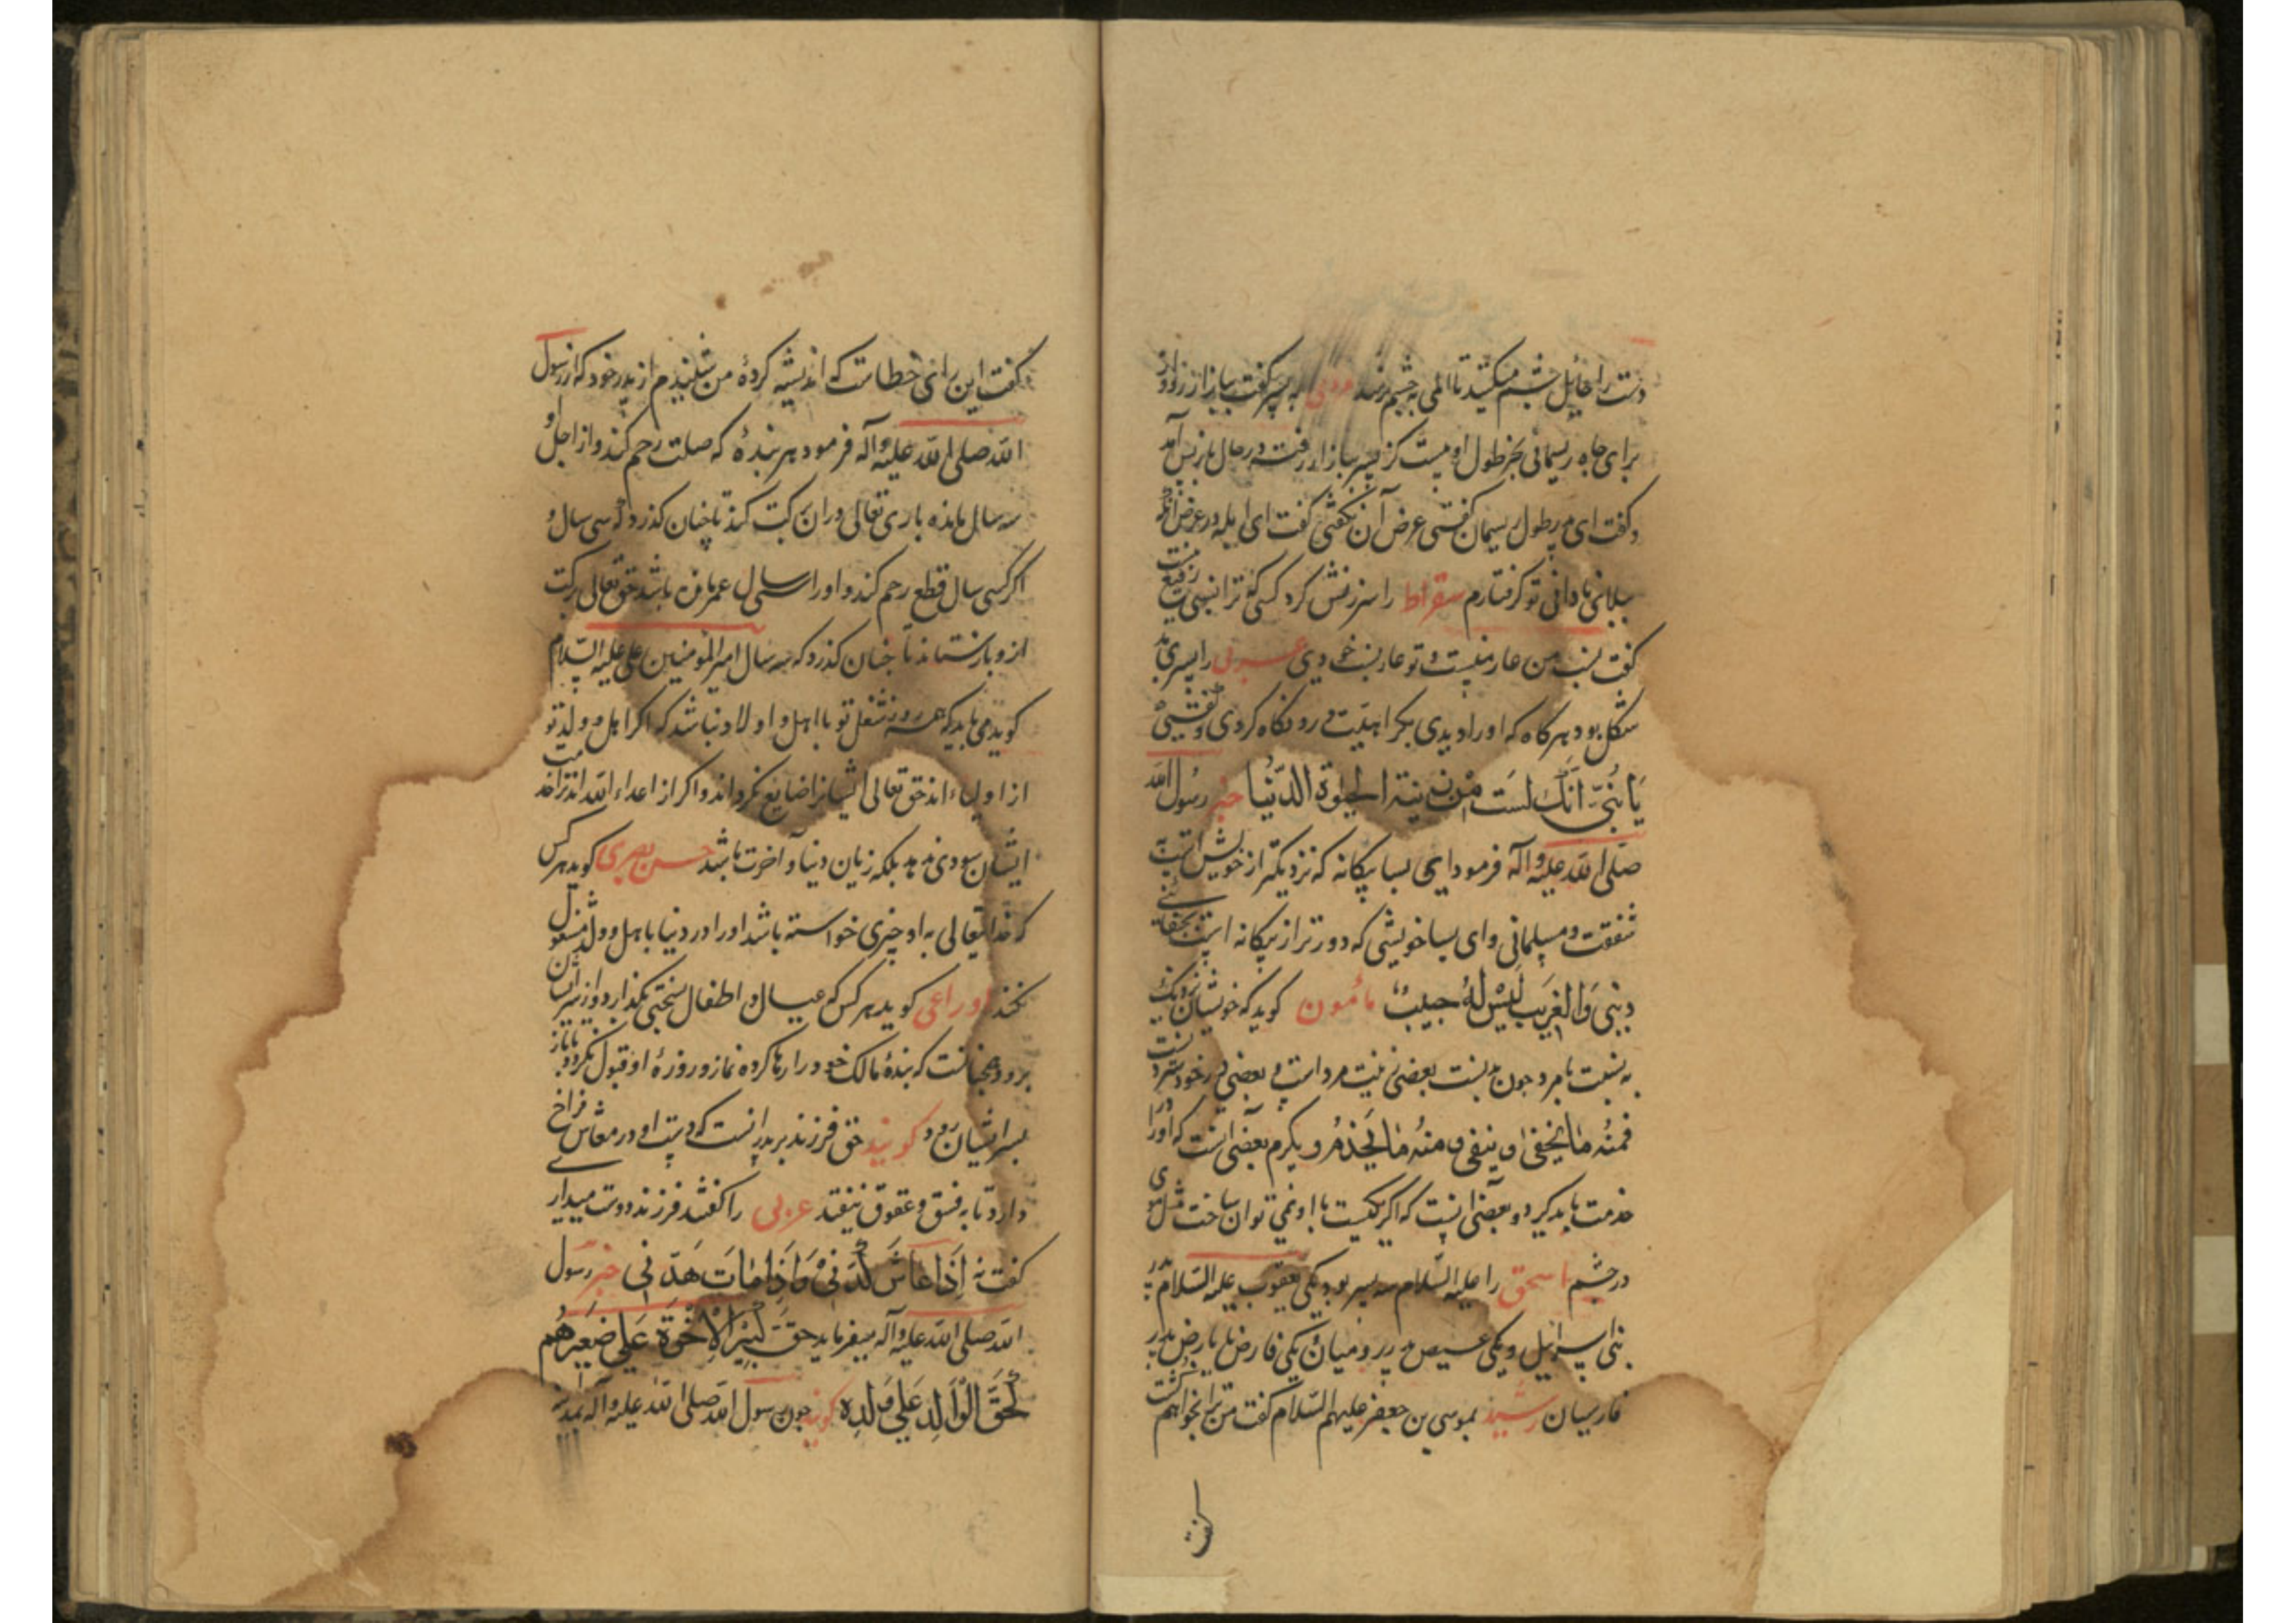 دست را حایل چشم میکشید تا المی به چشم نرسد مردی به پسر گفت ببازار رو و از
برای چاه ریسمانی بخر طول او بیست گز پسر ببازار رفت در حال باز پس آمد
و گفت ای پدر طول ریسمان گفتی عرض آن نگفتی گفت ای ابله در عرض
ببلای نادانی تو گرفتارم سقراط را سرزنش کرد کسی که ترا نسبی رفیع نیست
گفت نسب من عار منست و تو عار نسب خودی عربی را پسری بد
شکل بود هر گاه که او را دیدی بکراهیت در رو نگاه کردی و گفتی
یَا بُنَیَّ اَنَّکَ لَستَ مِن زینة الحیوة الدُّنیَا خبر رسول الله
صلی الله علیه و آله فرمود ای بسا بیکانه که نزدیکتر از خویش است به
شفقت و مسلمانی و ای بسا خویشی که دورتر از بیکانه است
دینی وَالغَریب لَیسَ لَهُ حبیبٌ مأمون کوید که خویشان نزدیک
به نسبت با مرد چون نسبت بعضی زینت مرد است و بعضی
فمنه ما یخفی و ینفی و منه ما یخدم و یکرم بعضی انست که او را
خدمت باید کرد و بعضی انست که اکر نکیست با او نمی توان ساخت مثل موی
در چشم اسحق را علیه السلام سه پسر بود یکی یعقوب علیه السلام پدر
بنی اسرائیل و یکی عیص پدر رومیان یکی فارض پدر
فارسیان رشید بموسی بن جعفر علیهم السلام گفت من ترا بخواهم کشت
گفت
گفت این رای خطاست که اندیشه کردهٔ من شنیدم از پدر خود که از رسول
الله صلی الله علیه و آله فرمود هر بندهٔ که صلت رحم کند و از اجل او
سه سال مانده باری تعالی در ان برکت کند تا چنان کذرد که سی سال و
اکر کسی سال قطع رحم کند و او را سی سال عمر مانده باشد حق تعالی برکت
ازو بازستاند تا چنان کذرد که سه سال امیر المؤمنین علی علیه السلام
کوید می باید که همه روز شغل تو با اهل و اولاد نباشد که اکر اهل و ولد تو
از اولیاء اند حق تعالی ایشانرا ضایع نکرداند و اکر از اعداء الله اند ترا خدمت
ایشان سودی ندهد بلکه زیان دنیا و آخرت باشد حسن بصری کوید هر کس
که خدا تعالی به او خیری خواسته باشد او را در دنیا با اهل و ولد مشغول
نکند اوزاعی کوید هر کس که عیال و اطفال بسختی بکذارد و از سر ایشان
برود همچنانست که بندهٔ مالک خود را رها کرده نماز و روزهٔ او قبول نکردد تا باز
بسر ایشان رود کویند حق فرزند بر پدر انست که دست او در معاش فراخ
دارد تا به فسق و عقوق نیفتد عربی را گفتند فرزند دوست میداری
گفت نه اِذَا عَاشَ کَدَّنی وَاِذَا مَاتَ هَدَّنی خبر رسول
الله صلی الله علیه و آله میفرماید حَقُّ کَبیر الاِخوَة عَلی صَغیرهُم
کَحَقِّ الوَالِد عَلی وَلَدِه کویند چون رسول الله صلی الله علیه و آله بمدینه